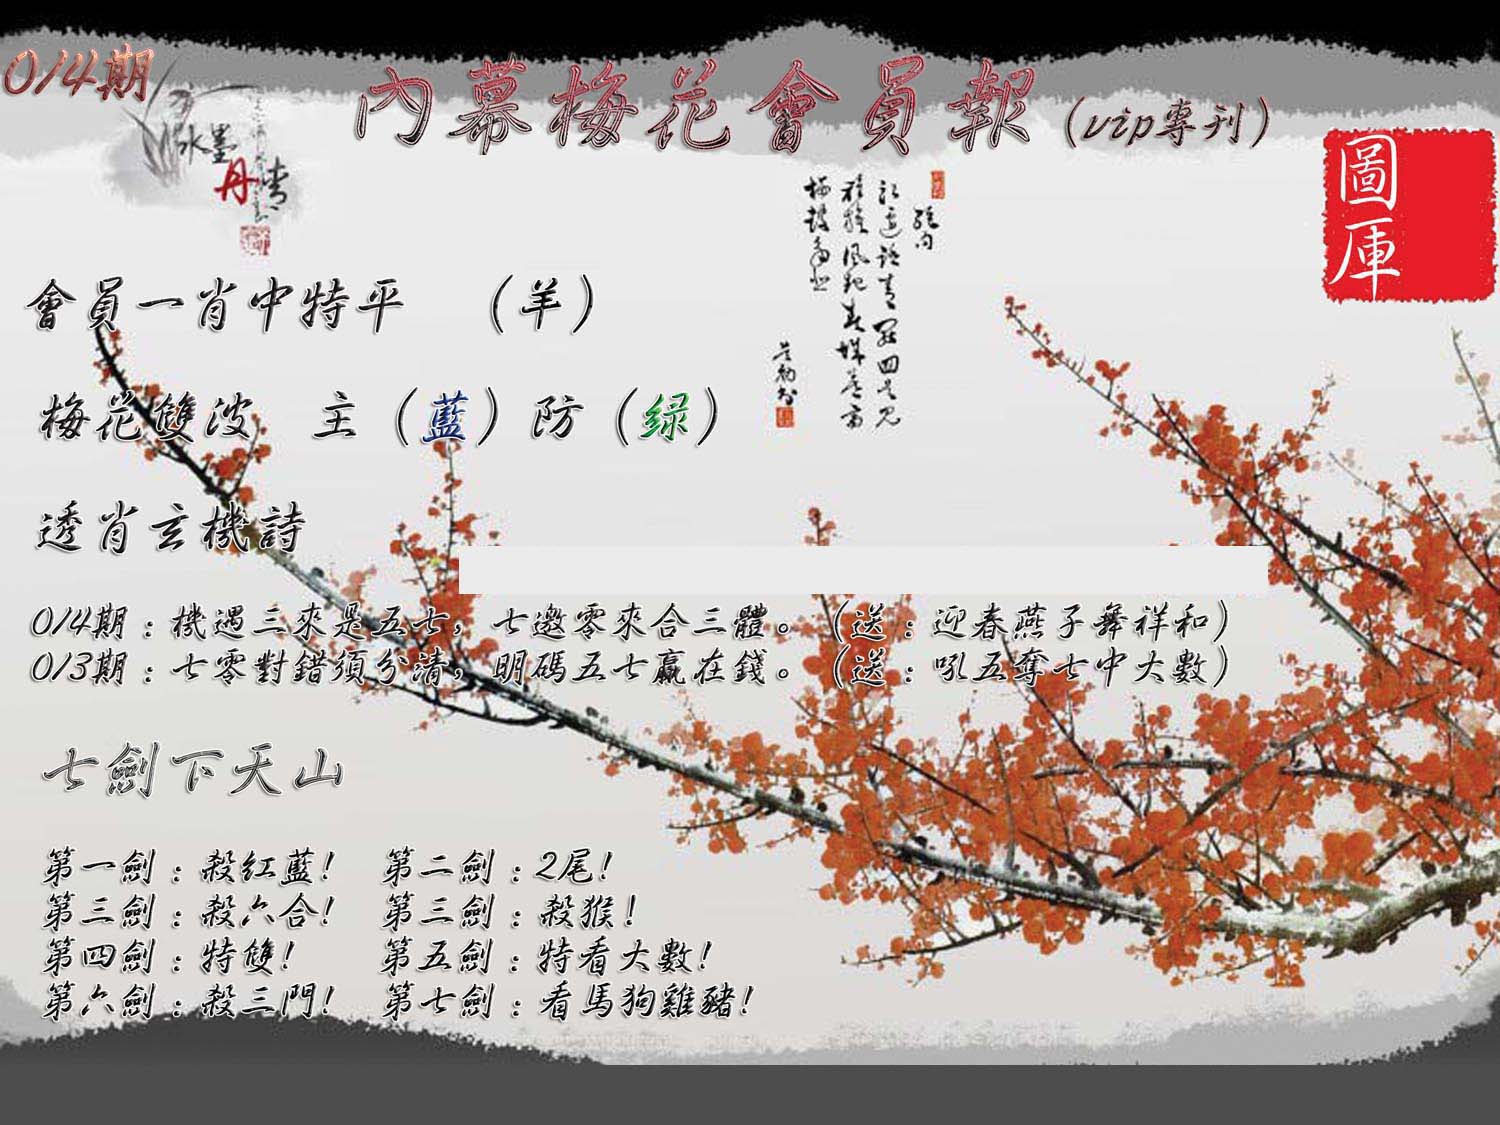 014期
內幕梅花會員報（vip專刊）
水墨
丹青
圖庫
會員一肖中特平 （羊）
梅花雙波 主（藍）防（綠）
透肖玄機詩
014期：機遇三來是五七，七邀零來合三體。（送：迎春燕子舞祥和）
013期：七零對錯須分清，明碼五七贏在錢。（送：吼五奪七中大數）
七劍下天山
第一劍：殺紅藍！ 第二劍：2尾！
第三劍：殺六合！ 第三劍：殺猴！
第四劍：特雙！ 第五劍：特看大數！
第六劍：殺三門！ 第七劍：看馬狗雞豬！